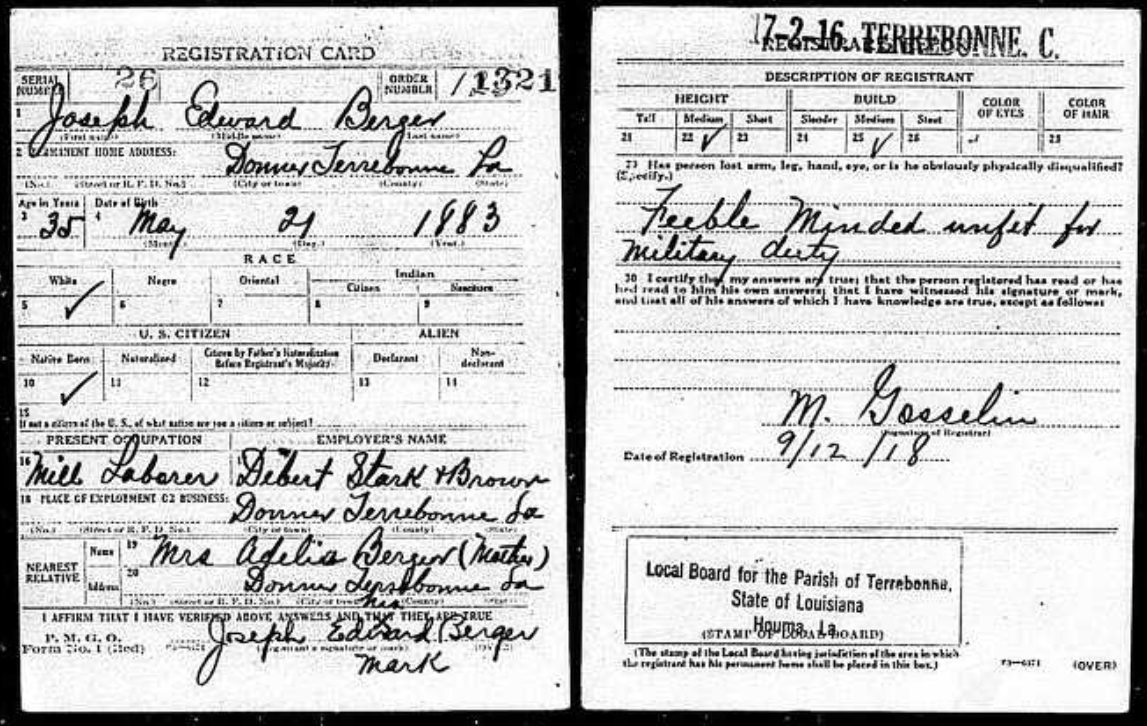 REGISTRATION CARD
SERIAL NUMBER 26 ORDER NUMBER 1321
1 Joseph Edward Berger
(First name) (Middle name) (Last name)
2 PERMANENT HOME ADDRESS:
Donner Terrebonne La
(No.) (Street or R. F. D. No.) (City or town) (County) (State)
Age in Years Date of Birth
3 35 4 May 21 1883
(Month.) (Day.) (Year.)
RACE
White Negro Oriental Indian
Citizen Noncitizen
5 ✓ 6 7 8 9
U. S. CITIZEN ALIEN
Native Born Naturalized Citizen by Father's Naturalization Before Registrant's Majority Declarant Non-declarant
10 ✓ 11 12 13 14
15
If not a citizen of the U. S., of what nation are you a citizen or subject?
PRESENT OCCUPATION EMPLOYER'S NAME
16 Mill Laborer Dibert Stark & Brown
18 PLACE OF EMPLOYMENT OR BUSINESS:
Donner Terrebonne La
(No.) (Street or R. F. D. No.) (City or town) (County) (State)
NEAREST RELATIVE Name 19 Mrs Adelia Berger (Mother)
Address 20 Donner Terrebonne La
(No.) (Street or R. F. D. No.) (City or town) (County) (State)
his
I AFFIRM THAT I HAVE VERIFIED ABOVE ANSWERS AND THAT THEY ARE TRUE
P. M. G. O.
Form No. 1 (Red) Joseph Edward Berger
(Registrant's signature or mark) (OVER)
mark
17-2-16 TERREBONNE. C.
REGISTRAR'S REPORT
DESCRIPTION OF REGISTRANT
HEIGHT BUILD COLOR OF EYES COLOR OF HAIR
Tall Medium Short Slender Medium Stout
21 22 ✓ 23 24 25 ✓ 26
29 Has person lost arm, leg, hand, eye, or is he obviously physically disqualified?
(Specify.)
Feeble Minded unfit for
military duty
30 I certify that my answers are true; that the person registered has read or has
had read to him his own answers; that I have witnessed his signature or mark,
and that all of his answers of which I have knowledge are true, except as follows:
M. Gosselin
(Signature of Registrar)
Date of Registration 9/12/18
Local Board for the Parish of Terrebonne,
State of Louisiana
Houma, La.
(STAMP OF LOCAL BOARD)
(The stamp of the Local Board having jurisdiction of the area in which
the registrant has his permanent home shall be placed in this box.)
(OVER)